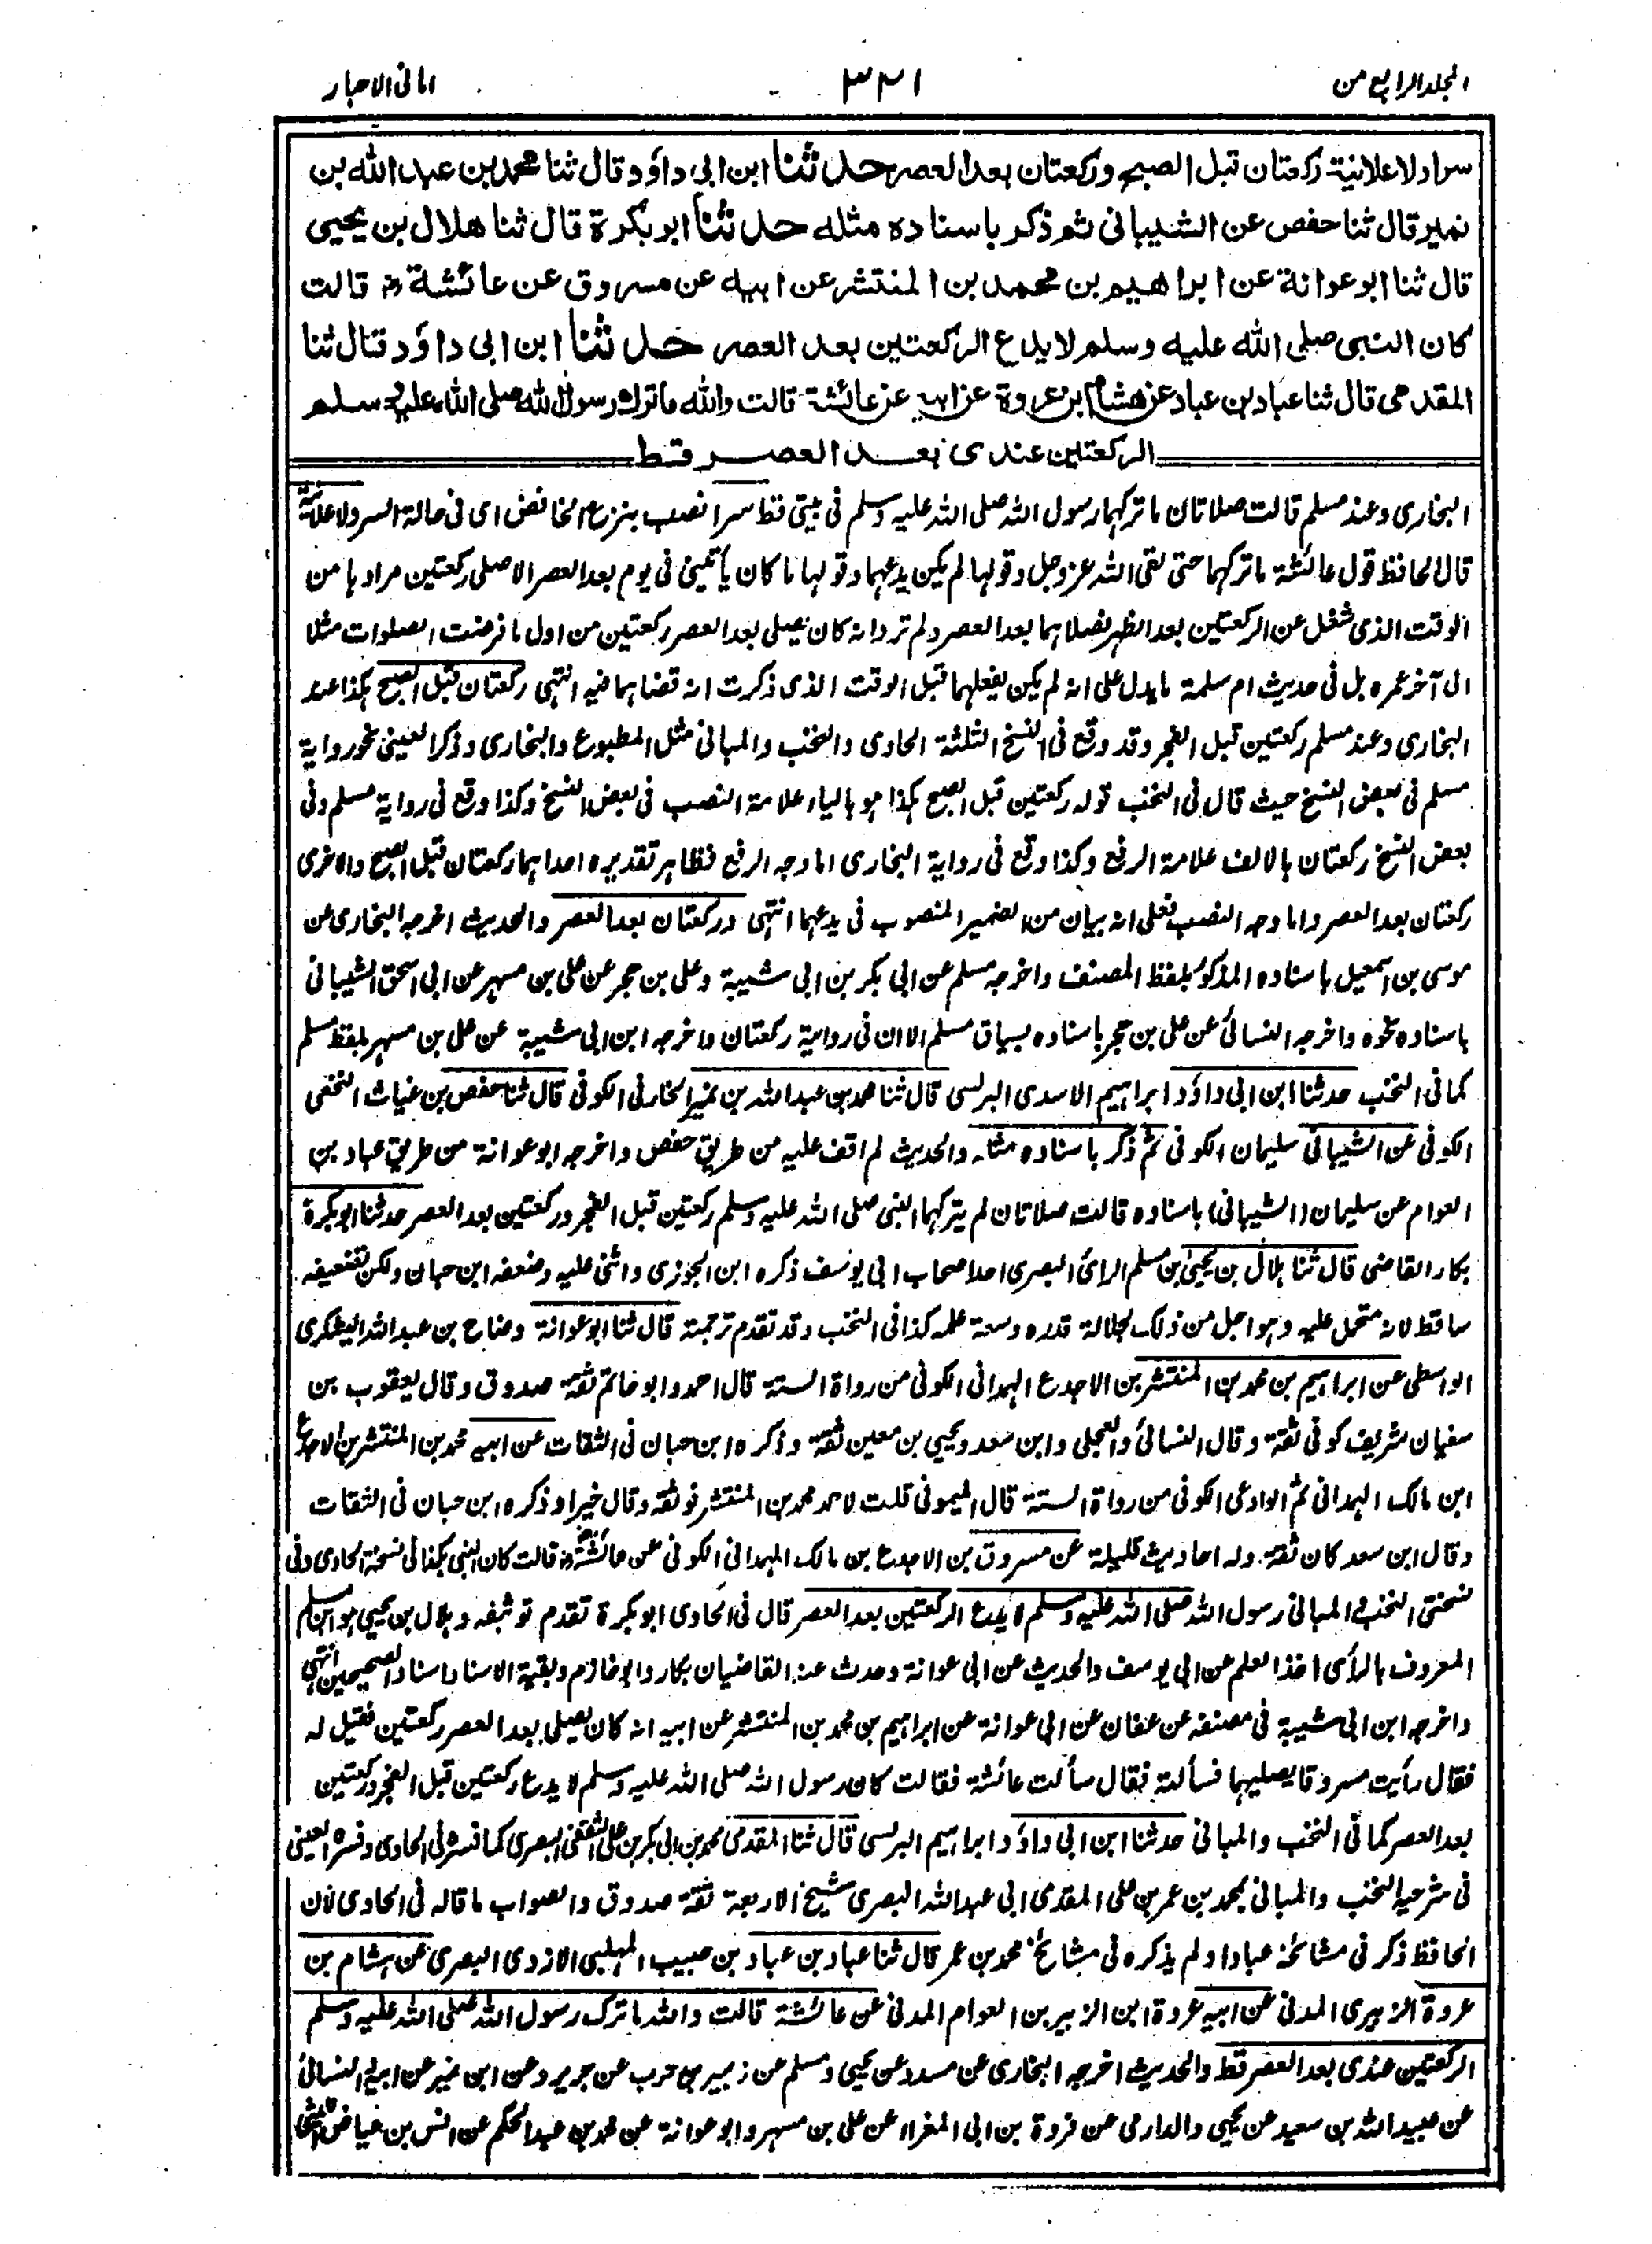 المجلد الرابع من
٣٢١
امانى الاحبار
سراولا علانية ركعتان قبل الصبح وركعتان بعد العصر حدثنا ابن ابى داؤد قال ثنا محمد بن عبد الله بن
نمير قال ثنا حفص عن الشيبانى ثم ذكر باسناده مثله حدثنا ابو بكرة قال ثنا هلال بن يحيى
قال ثنا ابو عوانة عن ابراهيم بن محمد بن المنتشر عن ابيه عن مسروق عن عائشة رض قالت
كان النبى صلى الله عليه وسلم لا يدع الركعتين بعد العصر حدثنا ابن ابى داؤد قال ثنا
المقدمى قال ثنا عباد بن عباد عن هشام بن عروة عن ابيه عن عائشة قالت والله ما ترك رسول الله صلى الله عليه وسلم
الركعتين عندى بعد العصر قط
البخارى وعند مسلم قالت صلاتان ما تركهما رسول الله صلى الله عليه وسلم فى بيتى قط سرا نصب بنزع الخافض اى فى حالة السر ولا علانية
قال الحافظ قول عائشة ما تركهما حتى لقى الله عز وجل وقولها لم يكن يدعهما وقولها ما كان يأتينى فى يوم بعد العصر الا صلى ركعتين مرادها من
الوقت الذى شغل عن الركعتين بعد الظهر فصلاهما بعد العصر ولم ترد انه كان يصلى بعد العصر ركعتين من اول ما فرضت الصلوات مثلا
الى آخر عمره بل فى حديث ام سلمة ما يدل على انه لم يكن يفعلهما قبل الوقت الذى ذكرت انه قضاهما فيه انتهى ركعتان قبل الصبح هكذا عند
البخارى وعند مسلم ركعتين قبل الفجر وقد وقع فى النسخ الثلثة الحاوى والنخب والمبانى مثل المطبوع والبخارى وذكر العينى نحو رواية
مسلم فى بعض النسخ حيث قال فى النخب قوله ركعتين قبل الصبح هكذا هو بالياء علامة النصب فى بعض النسخ وكذا وقع فى رواية مسلم وفى
بعض النسخ ركعتان بالالف علامة الرفع وكذا وقع فى رواية البخارى اما وجه الرفع فظاهر تقديره احداهما ركعتان قبل الصبح والاخرى
ركعتان بعد العصر واما وجه النصب فعلى انه بيان من الضمير المنصوب فى يدعهما انتهى وركعتان بعد العصر والحديث اخرجه البخارى عن
موسى بن اسمعيل باسناده المذكور بلفظ المصنف واخرجه مسلم عن ابى بكر بن ابى شيبة وعلى بن حجر عن على بن مسهر عن ابى اسحق الشيبانى
باسناده نحوه واخرجه النسائى عن على بن حجر باسناده بسياق مسلم الا ان فى رواية ركعتان واخرجه ابن ابى شيبة عن على بن مسهر بلفظ مسلم
كما فى النخب حدثنا ابن ابى داؤد ابراهيم الاسدى البرلسى قال ثنا محمد بن عبد الله بن نمير الخارفى الكوفى قال ثنا حفص بن غياث النخعى
الكوفى عن الشيبانى سليمان الكوفى ثم ذكر باسناده مثله والحديث لم اقف عليه من طريق حفص واخرجه ابو عوانة من طريق عباد بن
العوام عن سليمان (الشيبانى) باسناده قالت صلاتان لم يتركهما النبى صلى الله عليه وسلم ركعتين قبل الفجر وركعتين بعد العصر حدثنا ابو بكرة
بكار القاضى قال ثنا هلال بن يحيى بن مسلم الرائ البصرى احد اصحاب ابى يوسف ذكره ابن الجوزى واثنى عليه وضعفه ابن حبان ولكن تضعيفه
ساقط لانه متحمل عليه وهو اجل من ذلك لجلالة قدره وسعة علمه كذا فى النخب وقد تقدم ترجمته قال ثنا ابو عوانة وضاح بن عبد الله اليشكرى
الواسطى عن ابراهيم بن محمد بن المنتشر بن الاجدع الهمدانى الكوفى من رواة الستة قال احمد وابو حاتم ثقة صدوق وقال يعقوب بن
سفيان شريف كوفى ثقة وقال النسائى والعجلى وابن سعد ويحيى بن معين ثقة وذكره ابن حبان فى الثقات عن ابيه محمد بن المنتشر بن الاجدع
ابن مالك الهمدانى ثم الوادعى الكوفى من رواة الستة قال الميمونى قلت لاحمد محمد بن المنتشر فوثقه وقال خيرا وذكره ابن حبان فى الثقات
وقال ابن سعد كان ثقة وله احاديث قليلة عن مسروق بن الاجدع بن مالك الهمدانى الكوفى عن عائشة رض قالت كان النبى هكذا فى نسخة الحاوى وفى
نسختى النخب والمبانى رسول الله صلى الله عليه وسلم لا يدع الركعتين بعد العصر قال فى الحاوى ابو بكرة تقدم توثيقه وهلال بن يحيى هو ابن مسلم
المعروف بالرأى اخذ العلم عن ابى يوسف والحديث عن ابى عوانة وحدث عنه القاضيان بكار وابو خازم وبقية الاسناد اسناد الصحيحين انتهى
واخرجه ابن ابى شيبة فى مصنفه عن عفان عن ابى عوانة عن ابراهيم بن محمد بن المنتشر عن ابيه انه كان يصلى بعد العصر ركعتين فقيل له
فقال رأيت مسروقا يصليهما فسألته فقال سألت عائشة فقالت كان رسول الله صلى الله عليه وسلم لا يدع ركعتين قبل الفجر وركعتين
بعد العصر كما فى النخب والمبانى حدثنا ابن ابى داؤد ابراهيم البرلسى قال ثنا المقدمى محمد بن ابى بكر بن على الثقفى البصرى كما فسره فى الحاوى وفسره العينى
فى شرحيه النخب والمبانى بمحمد بن عمر بن على المقدمى ابى عبد الله البصرى شيخ الاربعة ثقة صدوق والصواب ما قاله فى الحاوى لان
الحافظ ذكر فى مشائخه عبادا ولم يذكره فى مشايخ محمد بن عمر قال ثنا عباد بن عباد بن حبيب المهلبى الازدى البصرى عن هشام بن
عروة الزبيرى المدنى عن ابيه عروة ابن الزبير بن العوام المدنى عن عائشة قالت والله ما ترك رسول الله صلى الله عليه وسلم
الركعتين عندى بعد العصر قط والحديث اخرجه البخارى عن مسدد عن يحيى ومسلم عن زهير بن حرب عن جرير وعن ابن نمير عن ابيه والنسائى
عن عبيد الله بن سعيد عن يحيى والدارمى عن فروة بن ابى المغراء عن على بن مسهر وابو عوانة عن محمد بن عبد الحكم عن انس بن عياض